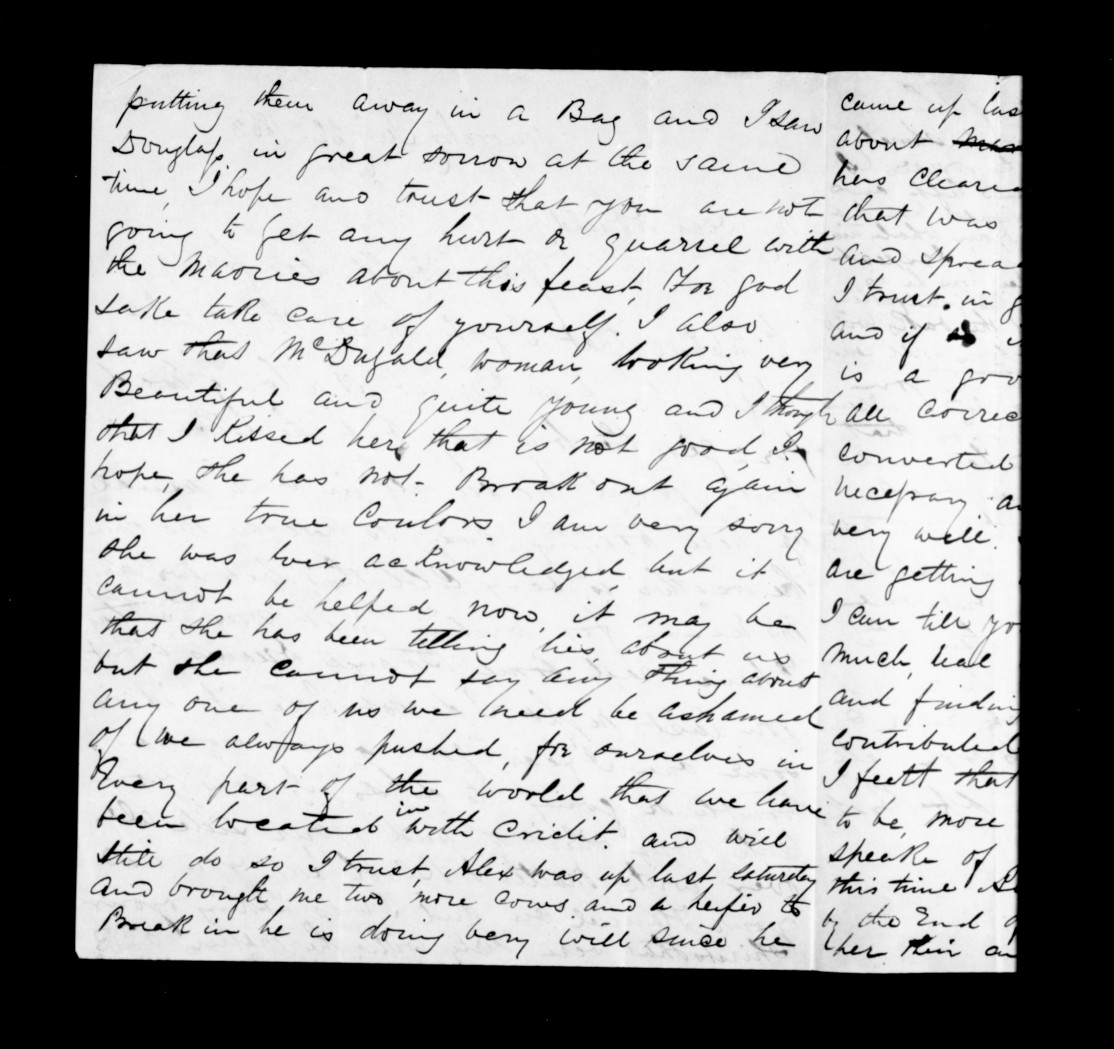 putting them away in a Bag and I saw
Douglass, in great sorrow at the same
time, I hope and trust that you are not
going to get any hurt or quarrel with
the Maories about this feast, For god
sake take care of yourself. I also
saw that McDugald, woman, looking very
Beautiful and quite young and I though
that I Kissed her, that is not good, I
hope, she has not. Break out again
in her true coulors I am very sorry
she was ever acknowledged, but it
cannot be helped now, it may be
that she has been telling lies, about us
but she cannot say any thing about
any one of us we need be ashamed
of we always pushed, for ourselves in
Every part of the world that we have
been located in with cridit. and will
still do so I trust, Alex was up last saturday
and brought me two more cows and a heifer to
Break in he is doing very will since he
came up las
about
hers cleare
that was
and sprea
I trust, in g
and if
is a goo
all correc
converted
necessary a
very well.
are getting
I can till yo
much, leal
and finding
contributed
I feelt that
to be, more
speake of
this time
by the End o
her thin an